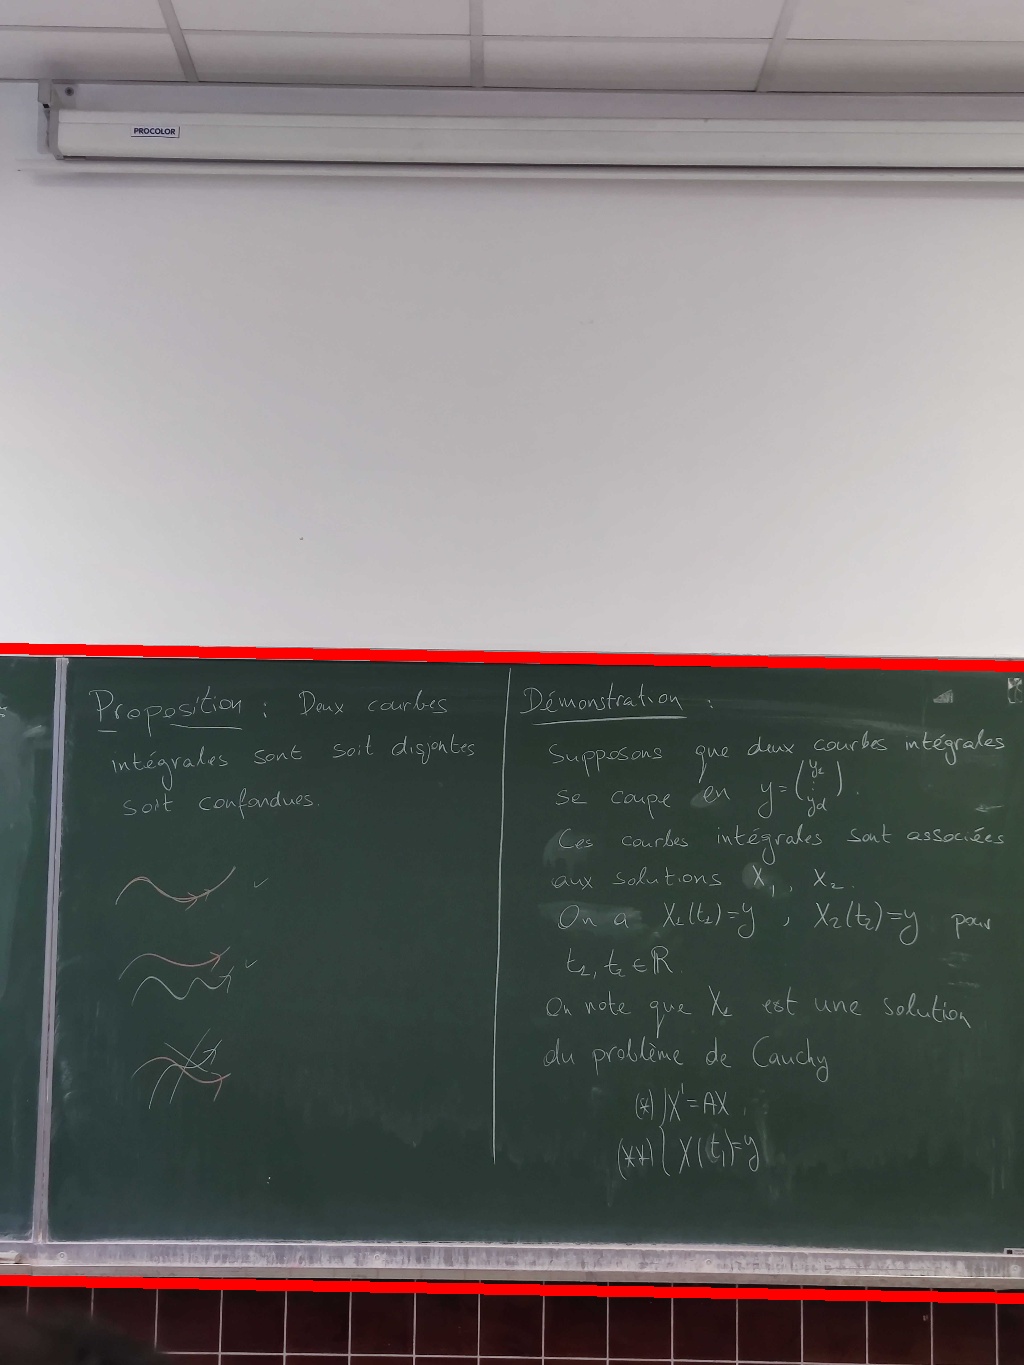 PROCOLOR
Proposition : Deux courbes
intégrales sont soit disjontes
soit confondues.
Démonstration :
Supposons que deux courbes intégrales
se coupe en y = (y₁ ⋮ yd).
Ces courbes intégrales sont associées
aux solutions X₁, X₂.
On a X₁(t₁)=y , X₂(t₂)=y pour
t₁, t₂ ∈ ℝ.
On note que X₁ est une solution
du problème de Cauchy
(*) { X' = AX
(**) { X(t₁)=y